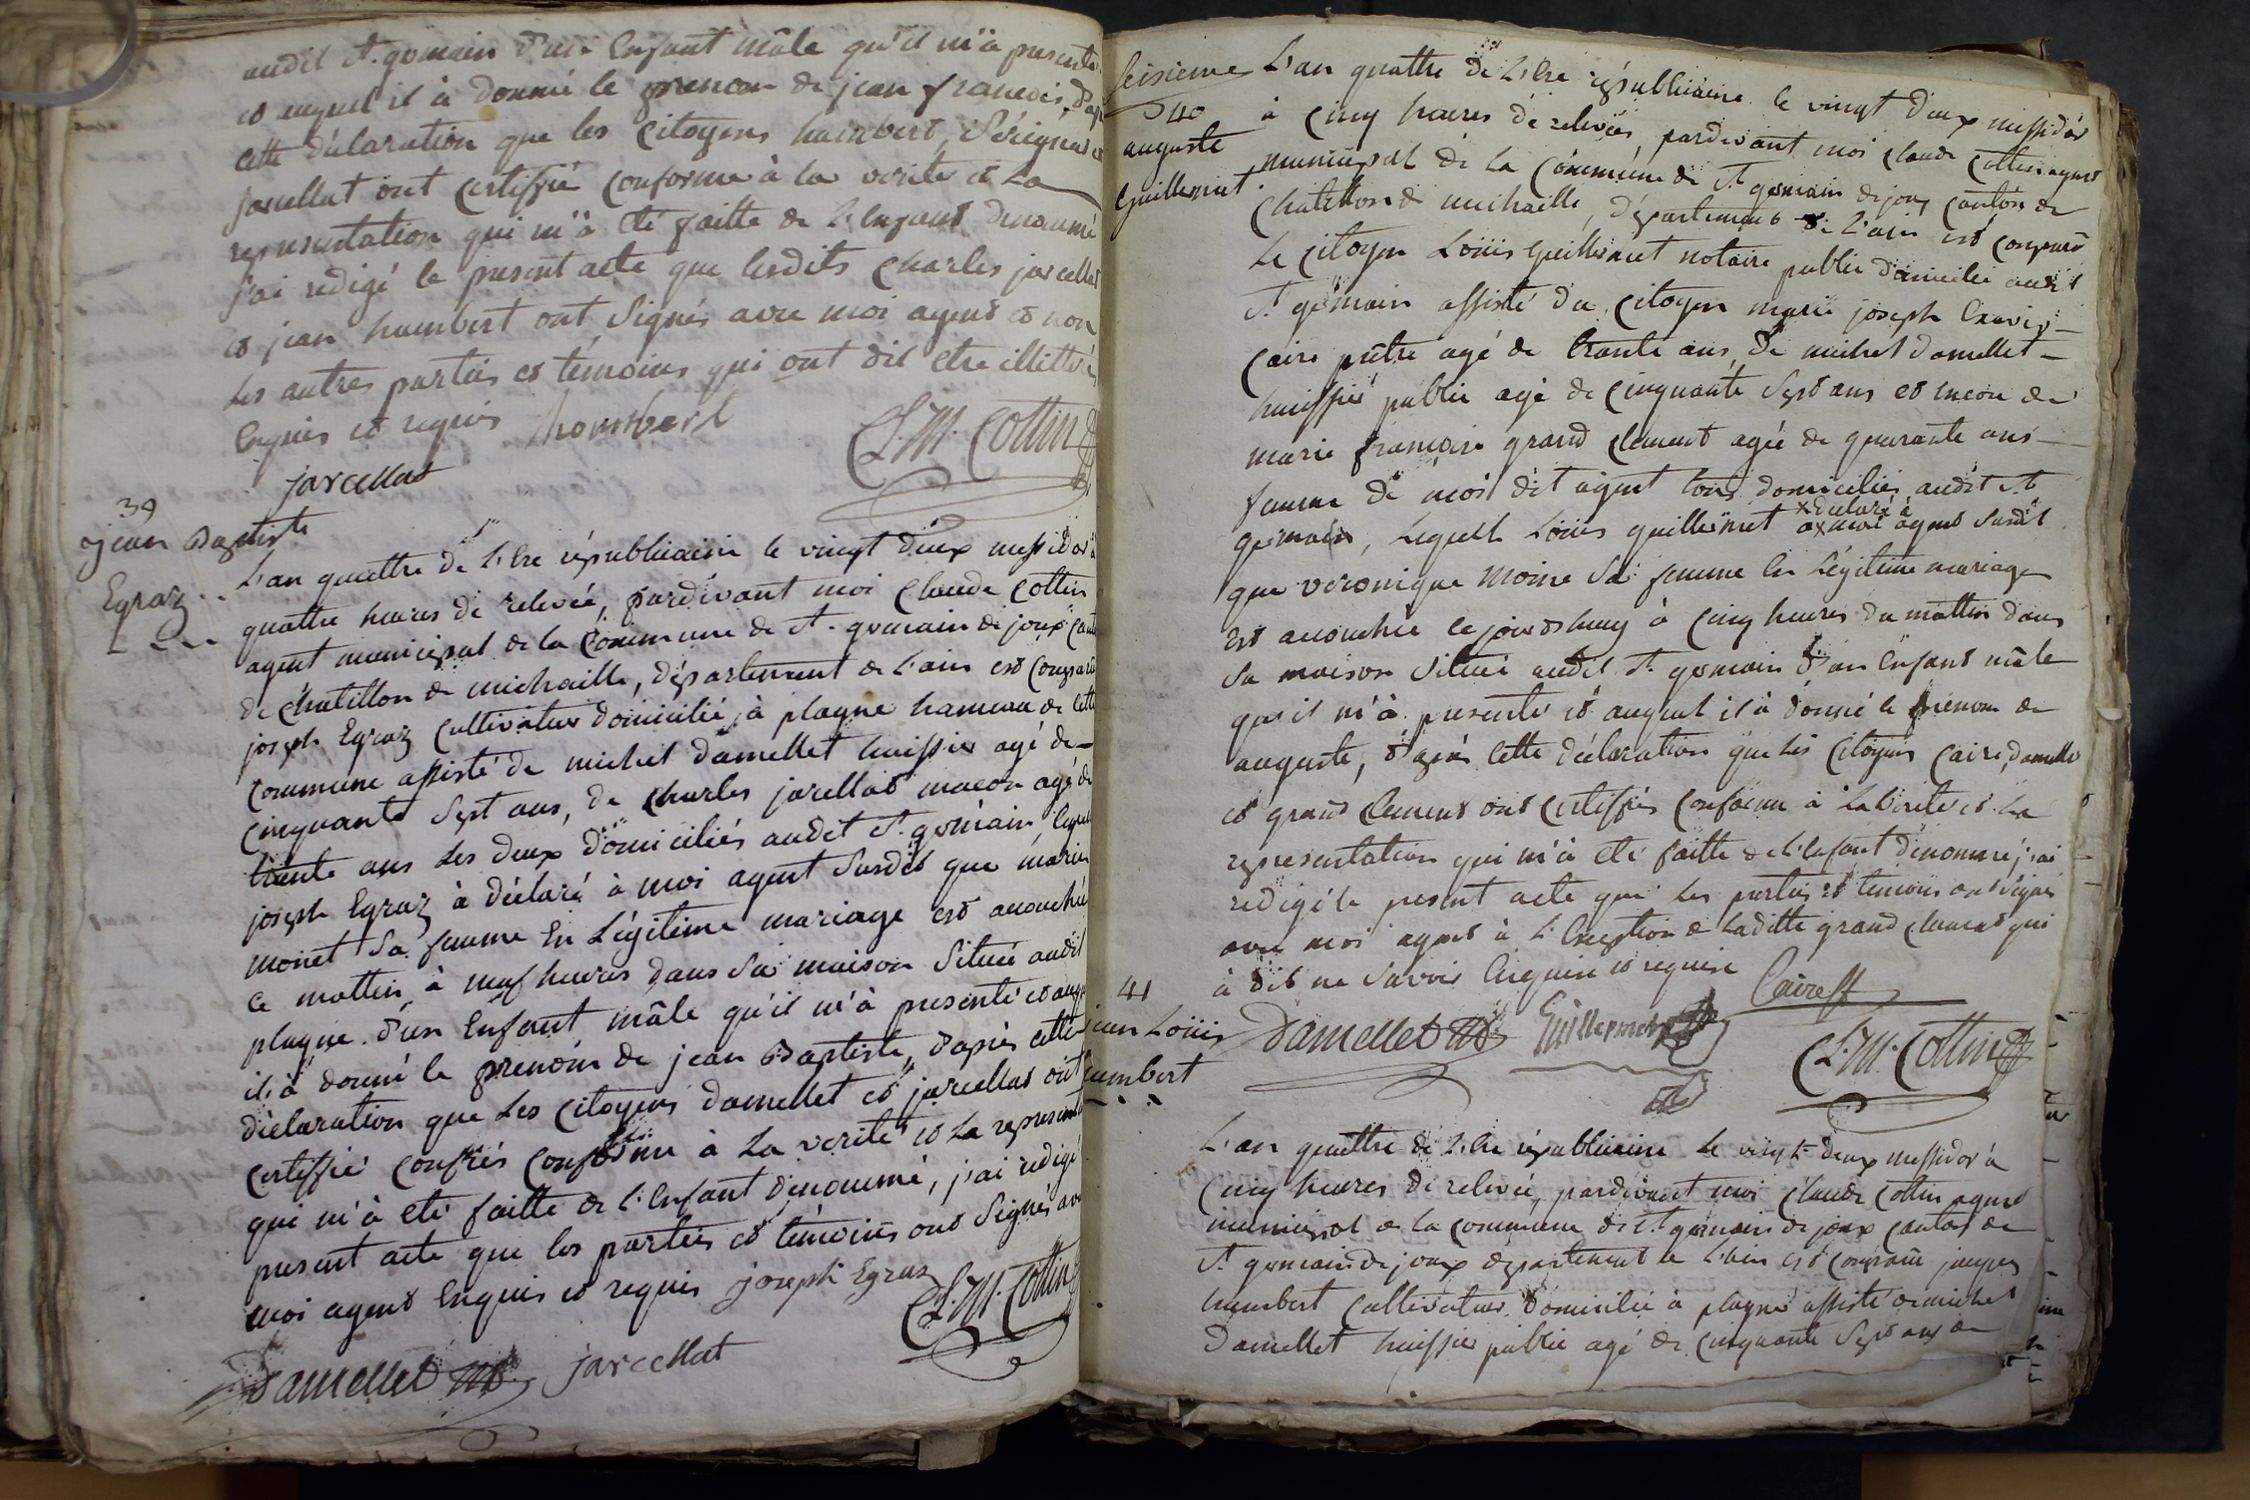 audit St. germain d'un Enfant mâle qu'il m'à presenté
et auquel il à donné le prenom de jean francois, d'apr
cette déclaration que les Citoyens humbert, et
jarcellat ont certiffié Conforme à la verité et La
representation qui m'à eté faitte de l'Enfant denommé
j'ai redigé le present acte que lesdits Charles jarcellat
et jean humbert ont Signés avec moi agent et non
Les autres parties et témoins qui ont dit etre illittrés
Enquis et requis homtberl
Cl. M. Cottin
jarcellat
39
jean Baptiste
Egraz
L'an quattre de L'Ere républicaine le vingt deux messidor à
quattre heures de relevée, pardevant moi Claude Cottin
agent municipal de la Commune de St. germain de joux Cant
de Chatillon de michaille, département de L'ain est Comparu
joseph Egraz Cultivateur domicilié à plagne hameau de Cette
Commune assisté de michel damellet huissier agé de
Cinquante Sept ans, de Charles jarcellat macon agé de
trente ans Les deux domiciliés audit St. germain, lequel
joseph Egraz à déclaré à moi agent Susdit que marie
monet Sa femme En Légitime mariage est accouchée
Ce mattin à neuf heures dans Sa maison Située audit
plagne d'un Enfant mâle qu'il m'à presenté et auqu
il à donné le prenom de jean Baptiste, d'apres cette
déclaration que Les Citoyens damellet et jarcellat ont
certiffié Conforme à La verité et La represent
qui m'à eté faitte de l'Enfant denommé, j'ai redigé
present acte que les parties et témoins ont Signés av
moi agent Enquis et requis joseph Egraz
Cl. M. Cottin
Damellet jarcellat
Seisieme
40
auguste
Guillermet
L'an quattre de L'Ere républicaine le vingt deux messidor
à Cinq heures de relevée, pardevant moi Claude Cottin agent
municipal de la Commune de St germain de joux Canton de
Chatillon de michaille, département de l'ain est Comparu
Le Citoyen Loüis Guillermet notaire public domicilié audit
St germain assisté du Citoyen marie joseph
Caire prêtre agé de trante ans, de michel damellet
huissier public agé de Cinquante Sept ans et encore de
marie francoise grand Clement agée de quarante ans
femme de moi dit agent tous domiciliés audit St
germain, Lequel Loüis guillermet x déclaré à x moi agent Susdit
que veronique Moine Sa femme En Légitime mariage
est accouchée cejourdhuy à Cinq heures du mattin dans
Sa maison Située audit St. germain d'un Enfant mâle
qu'il m'à presenté et auquel il à donné le prenom de
auguste, d'aprés Cette déclaration que Les Citoyens Caire, damellet
et grand Clement ont Certiffiés Conforme à La verité et La
representation qui m'à eté faitte de l'Enfant dénommé, j'ai
redigé le present acte que Les parties et temoins ont Signés
avec moi agent à L'Exception de Laditte grand Clement qui
à dit ne Savoir Enquise et requise
Caire
Damellet Guillermet Cl. M. Cottin
41
jean Loüis
humbert
L'an quattre de L'Ere républicaine Le vingt deux messidor à
Cinq heures de relevée, pardevant moi Claude Cottin agent
municipal de la Commune de St germain de joux Canton de
St germain de joux département de L'ain est Comparu jacques
humbert Cultivateur domicilié à plagne assisté de michel
Damellet huissier public agé de Cinquante Sept ans de